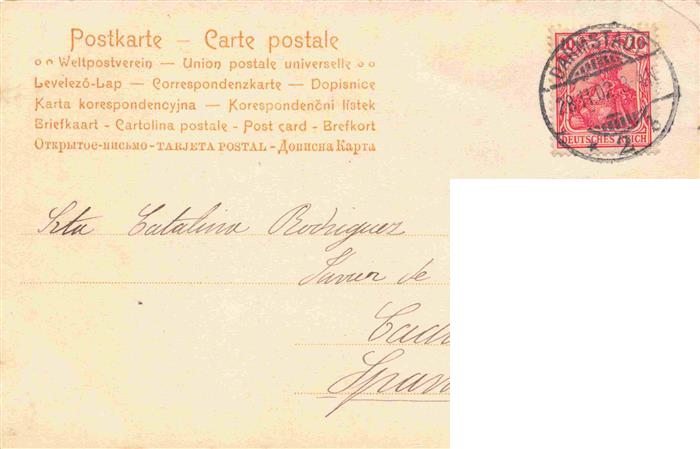 Postkarte – Carte postale
Weltpostverein – Union postale universelle
Levelező-Lap – Correspondenzkarte – Dopisnice
Karta korespondencyjna – Korespondenční lístek
Briefkaart - Cartolina postale - Post card - Brefkort
Открытое-письмо-TARJETA POSTAL-Дописна Карта
10 10
DEUTSCHES REICH
DARMSTADT
28.11.02
Srta Catalina Rodriguez
Javier de